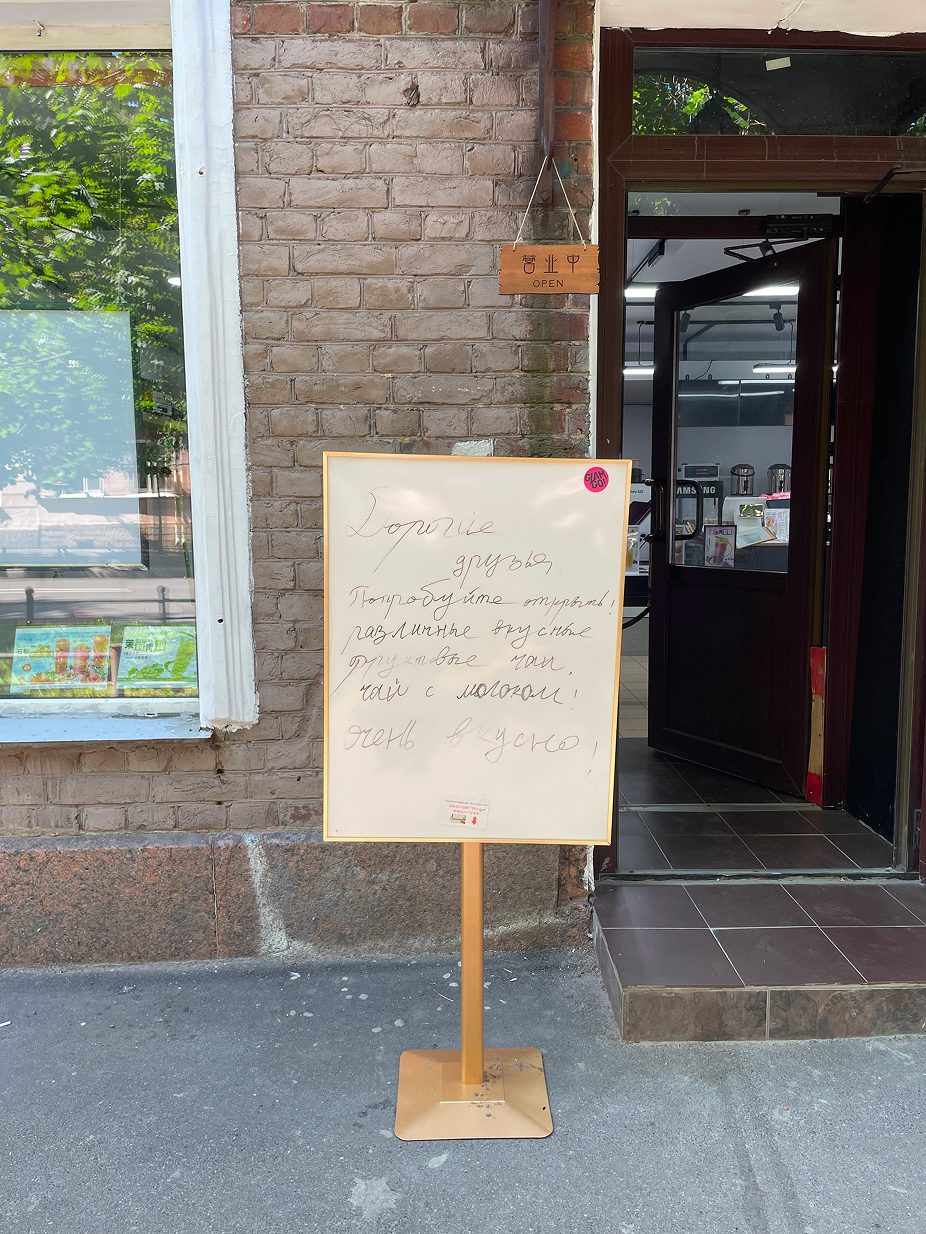 营业中
OPEN
GLAM
GO!
Дорогие
друзья,
Попробуйте открыть!
различные вкусные
фруктовые чаи,
чай с молоком!
очень вкусно!
SAMSUNG